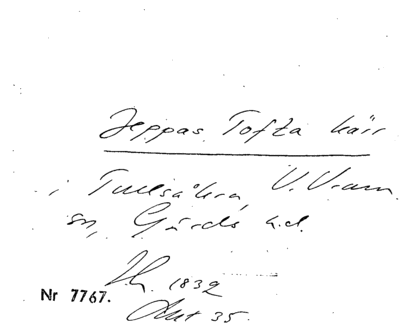 Jeppas Tofta kärr
i Tullsåkra, V. Vram
sn, Gärds h.d.
1832
Nr 7767. Akt 35.